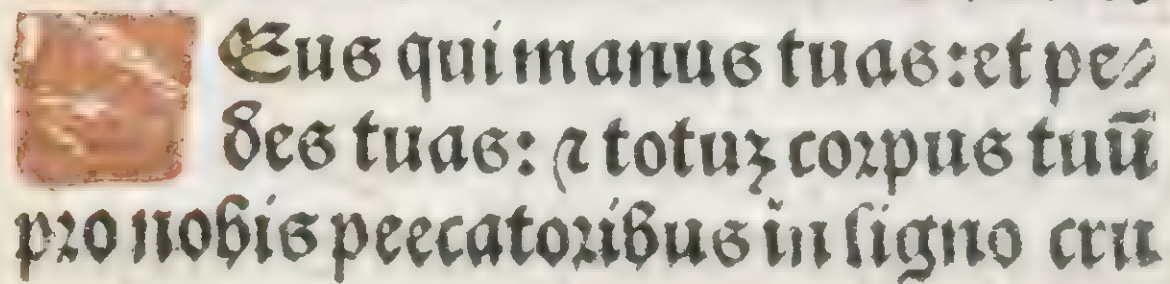 Eus qui manus tuas: et pe/
des tuas: ⁊ totuʒ corpus tuū
pro nobis peecatoribus in ligno cru